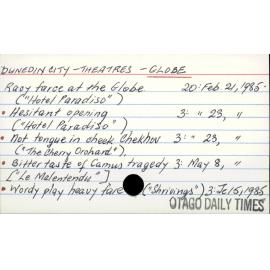 DUNEDIN CITY - THEATRES - GLOBE
Racy farce at the Globe 20: Feb. 21, 1985.
("Hotel Paradiso")
• Hesitant opening 3: " 23, "
("Hotel Paradiso")
• Not tongue in cheek Chekhov 3: " 23, "
("The Cherry Orchard").
• Bitter taste of Camus tragedy 3: May 8, "
["Le Malentendu"]
• Wordy play heavy fare ("Shrivings") 3: Jl 5, 1985
OTAGO DAILY TIMES